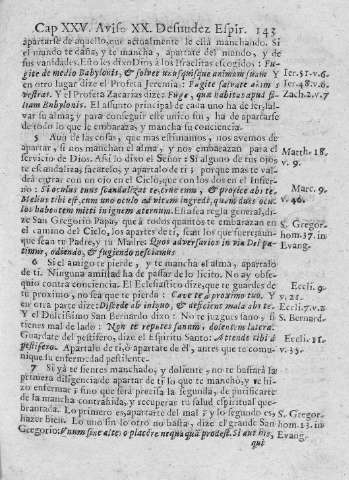 Cap XXV. Aviso XX. Desnudez Espir. 143
apartarse de aquello, que actualmente le está manchando. Si
el mundo te daña, y te mancha, apartate del mundo, y de
sus vanidades. Esto les dixo Dios à los Israelitas escogidos: Fu-
gite de medio Babylonis, & salvet unusquisque animam suam Y
en otro lugar dize el Profeta Jeremia: Fugite salvate animas
vestras. Y el Profeta Zacarias dize: Fuge, quæ habitas apud fi-
liam Babylonis. El assunto principal de cada uno ha de ser, sal-
var su alma; y para conseguir este unico fin, ha de apartarse
de todo lo que le embaraza, y mancha su conciencia.
Ier. 51. v. 6.
Ier. 48. v. 6.
Zach. 2. v. 7
5 Aun de las cosas, que mas estimamos, nos avemos de
apartar, si nos manchan el alma, y nos embarazan para el
servicio de Dios. Assi lo dixo el Señor: Si alguno de tus ojos
te escandaliza, sacatelo, y apartalo de ti; porque mas te val-
drá entrar con un ojo en el Cielo, que con los dos en el Infier-
no: Si oculus tuus scandalizat te, erue eum, & projice abs te.
Melius tibi est, cum uno oculo ad vitam ingredi, quam duos ocu-
los habentem mitti in ignem æternum. Esta es la regla general, di-
ze San Gregorio Papa, que à todos quantos te embarazan en
el camino del Cielo, los apartes de ti, sean los que fueren, aun-
que sean tu Padre, y tu Madre: Quos adversarios in via Dei pa-
timur, odiendo, & fugiendo nesciamus
Matth. 18.
v. 9.
Marc. 9.
v. 46.
S. Gregor.
hom. 37. in
Evang.
6 Si el amigo te pierde, y te mancha el alma, apartalo
de ti. Ninguna amistad ha de passar de lo licito. No ay obse-
quio contra conciencia. El Eclesiastico dize, que te guardes de
tu proximo, no sea que te pierda: Cave te à proximo tuo. Y en
otra parte dize: Discede ab iniquo, & deficient mala abs te.
Y el Dulcissimo San Bernardo dixo: No te juzgues sano, si
tienes mal de lado: Non te reputes sanum, dolentem latera.
Guardate de pestifero, dize el Espiritu Santo: Attende tibi à
pestifero. Apartalo de ti, ò apartate de él, antes que te comu-
nique su enfermedad pestilente.
Eccli. 9.
v. 21.
Eccli. 7. v. 2
S. Bernard.
Eccli. 11.
v. 35.
7 Si yà te sientes manchado, y doliente, no te bastará la
primera diligencia de apartar de ti lo que te manchó, y te hi-
zo enfermar; sino que será precisa la segunda, de purificarte
de la mancha contrahida, y recuperar tu salud espiritual que-
brantada. Lo primero es, apartarte del mal; y lo segundo es,
hazer bien. Lo uno sin lo otro no basta, dize el grande San
Gregorio: Unum sine altero placere nequaquam prodest. Si aut his,
qui
S. Gregor.
hom 13. in
Evang.